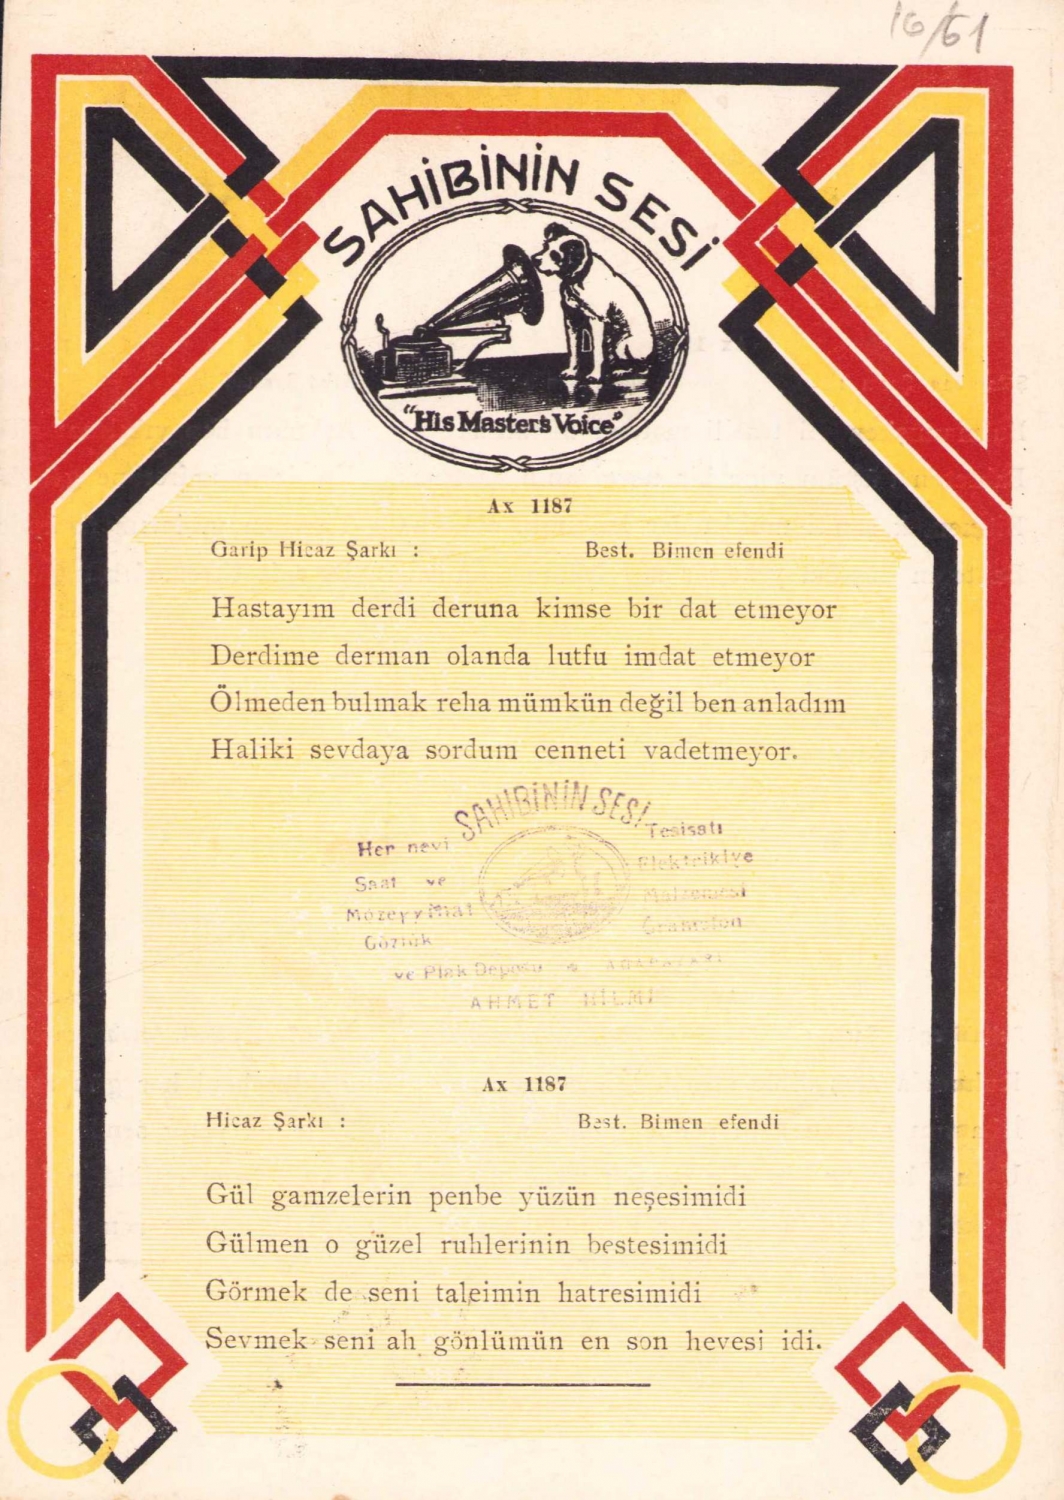 16/61
SAHİBİNİN SESİ
"His Master's Voice"
Ax 1187
Garip Hicaz Şarkı : Best. Bimen efendi
Hastayım derdi deruna kimse bir dat etmeyor
Derdime derman olanda lutfu imdat etmeyor
Ölmeden bulmak reha mümkün değil ben anladım
Haliki sevdaya sordum cenneti vadetmeyor.
SAHİBİNİN SESİ
Her nevi Tesisatı
Saat ve Elektrikiye
Mözeyyinat Malzemesi
Gözlük Gramafon
ve Plak Deposu ADAPAZARI
AHMET HİLMİ
Ax 1187
Hicaz Şarkı : Best. Bimen efendi
Gül gamzelerin penbe yüzün neşesimidi
Gülmen o güzel ruhlerinin bestesimidi
Görmek de seni taleimin hatresimidi
Sevmek seni ah gönlümün en son hevesi idi.